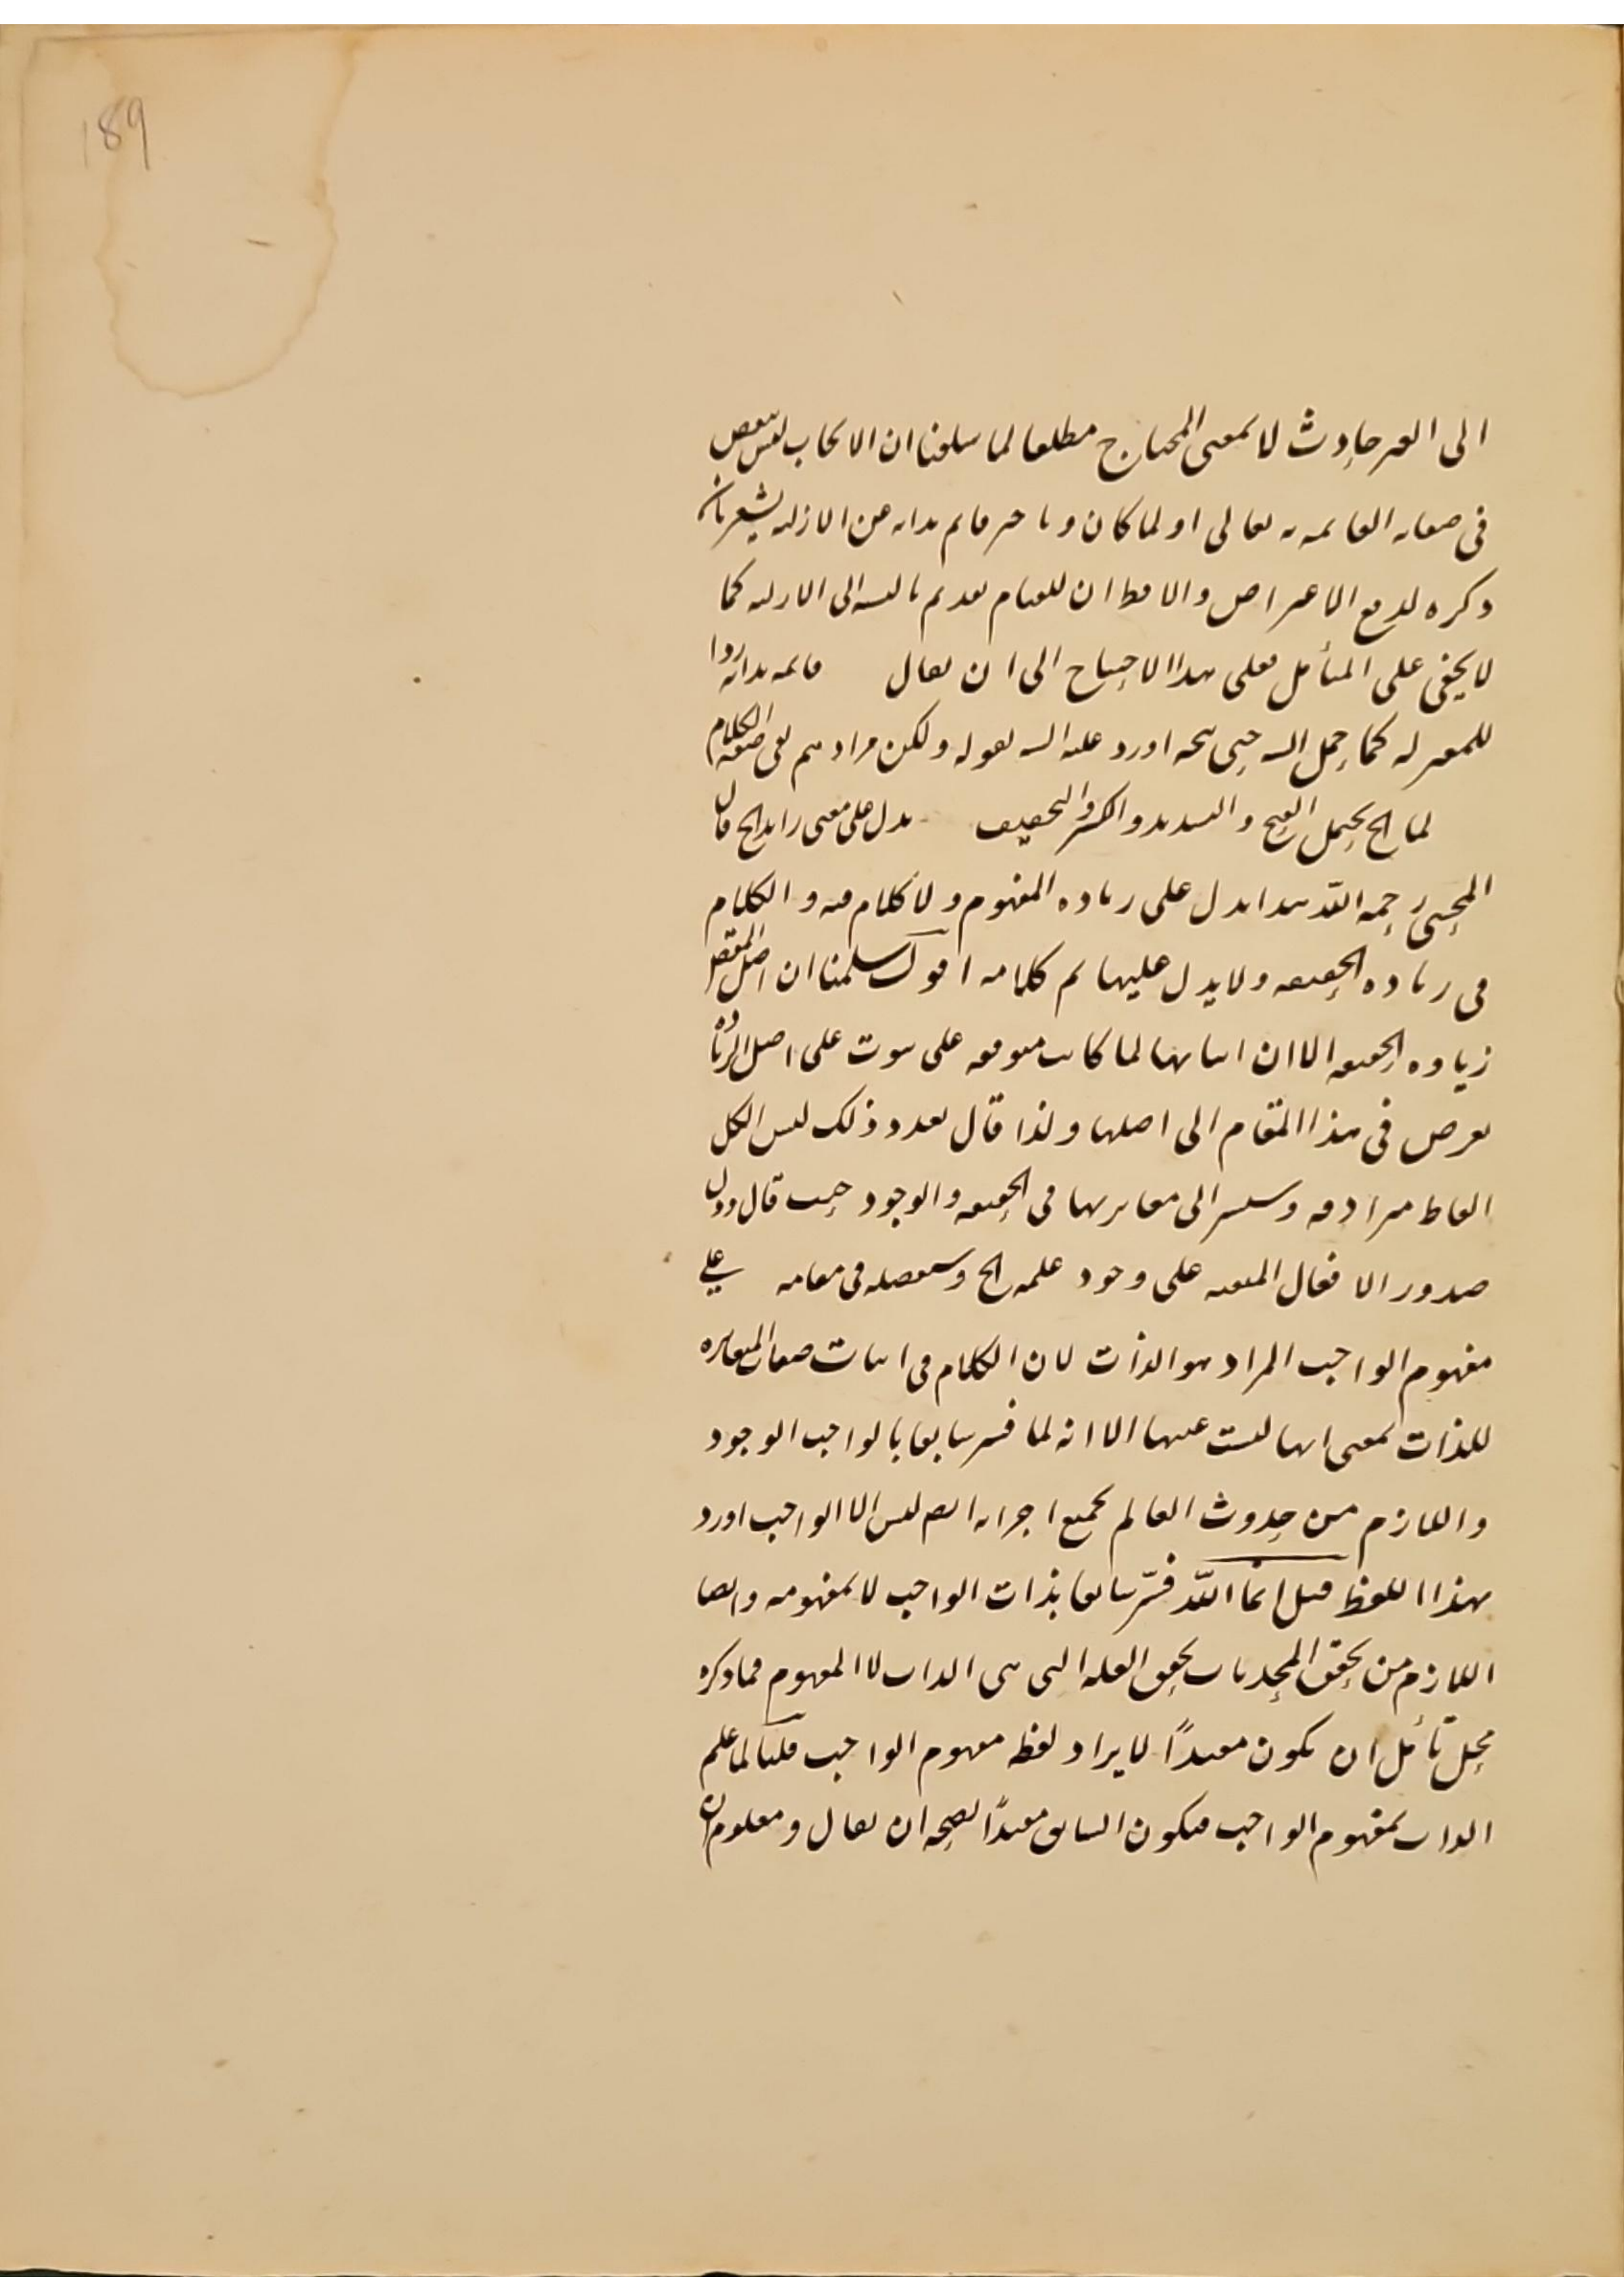 189
الى الغير حادث لا بمعنى المحتاج مطلقا لما سلفنا ان الايجاب ليس بنقص
فى صفاته القائمة به تعالى او لما كان و تاخير قائم بذاته عن الازلية يشعر بان
ذكره لدفع الاعتراض والا فظ ان للقيام تقدم بالنسبة الى الازلية كما
لا يخفى على المتأمل فعلى هذا الاحتياج الى ان يقال قائمة بذاته ردا
للمعتزلة كما حمل اليه حتى يتجه اورد عليه اليه بقوله ولكن مرادهم نفى صفة الكلام
لما الخ يحتمل الفتح والتشديد والكسر والتخفيف يدل على معنى زايد الخ قال
المحشى رحمه الله هذا يدل على زيادة المفهوم ولا كلام فيه والكلام
فى زيادة الحقيقة ولا يدل عليها تم كلامه اقول سلمنا ان اصل المقصد
زيادة الحقيقة الا ان اثباتها لما كانت متوقفة على ثبوت على اصل الزيادة
تعرض فى هذا المقام الى اصلها ولذا قال بعدد ذلك ليس الكل
الفاظ مترادفة وسيشير الى مغايرتها فى الحقيقة والوجود حيث قال ودل
صدور الافعال المتقنة على وجود علمه الخ وسنفصله فى مقامه على
مفهوم الواجب المراد هو الذات لان الكلام فى اثبات صفات المغايرة
للذات بمعنى انها ليست عينها الا انه لما فسر سابقا بالواجب الوجود
واللازم من حدوث العالم بجميع اجزائه ايضا ليس الا الواجب اورد
بهذا اللفظ قيل انما الله فسّر سابقا بذات الواجب لا بمفهومه وايضا
اللازم من تحقق المحدثات تحقق العلة التى هى الذات لا المفهوم فما ذكره
محل تأمل ان يكون مفيدًا لايراد لفظ مفهوم الواجب قلنا لما علم
الذات بمفهوم الواجب فيكون السابق مفيدًا لصحة ان يقال ومعلوم ان